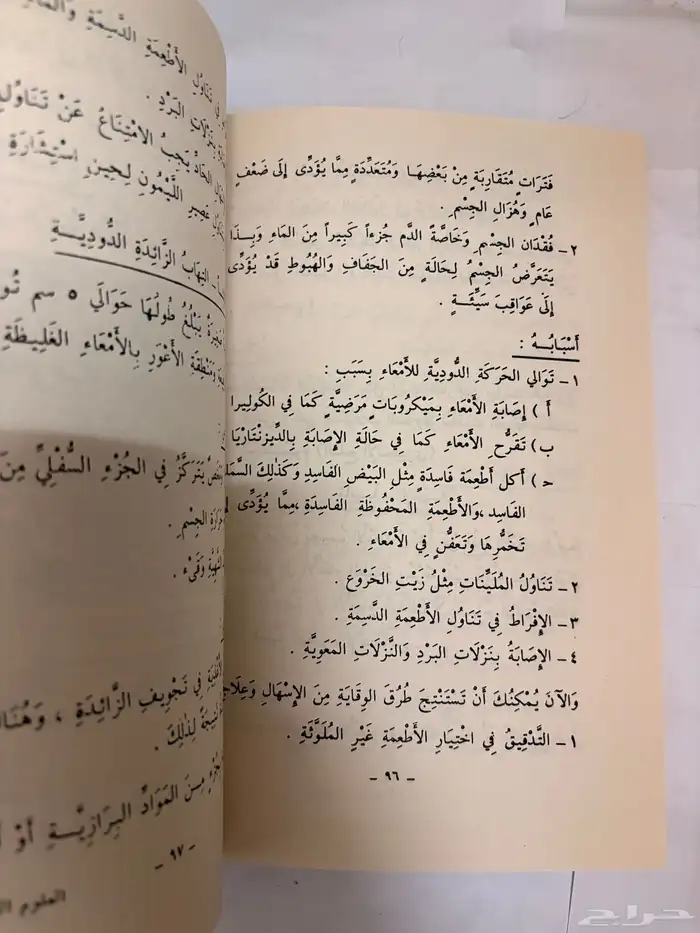 فَتَرَاتٍ مُتَقَارِبَةٍ مِنْ بَعْضِهَا وَمُتَعَدِّدَةٍ مِمَّا يُؤَدِّى إِلَى ضَعْفٍ
عَامٍ وَهُزَالِ الجِسْمِ .
٢ - فُقْدَان الجِسْمِ وَخَاصَّةً الدَّم جُزءاً كَبِيراً مِنَ المَاءِ وَبِـذَا
يَتَعَرَّضُ الجِسْمُ لِحَالَةٍ مِنَ الجَفَافِ وَالهُبُوطِ قَدْ يُؤَدِّى
إِلَى عَوَاقِبَ سَيِّئَـــةٍ .
أَسْبَابُــهُ :
١ - تَوَالي الحَرَكَةِ الدُّودِيَّةِ للأَمْعَاءِ بِسَبَبِ :
أ ) إِصَابَةِ الأَمْعَاءِ بِمَيْكرُوبَاتٍ مَرَضِيَّةٍ كَمَا فِي الكُولِيرا
ب) تَقَرُّحِ الأَمْعَاءِ كَمَا فِي حَالَةِ الإِصَابَةِ بِالدِّيزِنْتَارْيَا
حـ) أَكل أَطْعِمَة فَاسِدَةٍ مِثْلِ البَيْضِ الفَاسِدِ وَكَذَلِكَ
الفَاسِد ،وَالأَطْعِمَةِ المَحْفُوظَةِ الفَاسِدَةِ ،مِمَّا يُؤَدِّى
تَخَمُّرِهَا وَتَعَفُّنٍ فِي الأَمْعَاءِ .
٢ - تَنَاوُلُ المُلَيِّنَاتِ مِثْلُ زَيْتِ الخَرْوَعِ .
٣ - الإِفْرَاطُ فِي تَنَاوُلِ الأَطْعِمَةِ الدَّسِمَةِ .
٤ - الإِصَابَةُ بِنَزْلَاتِ البَرْدِ وَالنَّزْلَاتِ المَعَوِيَّةِ .
وَالآنَ يُمْكِنُكَ أَنْ تَسْتَنْتِجَ طُرُقَ الوِقَايَةِ مِنَ الإِسْهَالِ
١ - التَّدْقِيقُ فِي اخْتِيَارِ الأَطْعِمَةِ غَيْرِ المُلَوَّثَةِ .
- ٩٦ -
تَنَاوُلِ الأَطْعِمَةِ الدَّسِمَةِ
البَرْدِ .
يَجِبُ الامْتِنَاعُ عَنْ
عَصِيرِ اللَّيْمُونِ لِحِينِ اسْتِشَارَةِ
الْتِهَابُ الزَّائِدَةِ الدُّودِيَّـــةِ
يَبْلُغُ طُولُهَا حَوَالَي ٥ سم
الأَعْوَرِ بِالأَمْعَاءِ الغَلِيظَةِ
يَتَرَكَّزُ فِي الجُزْءِ السُّفْلِيِّ مِنَ
الجِسْمِ .
وَقَيْء .
فِي تَجْوِيفِ الزَّائِدَةِ ،
لِذَلِكَ .
مِـنَ المَوَادِّ البِرَازِيَّـــةِ أَوْ
- ٩٧ -
العلوم
حراج